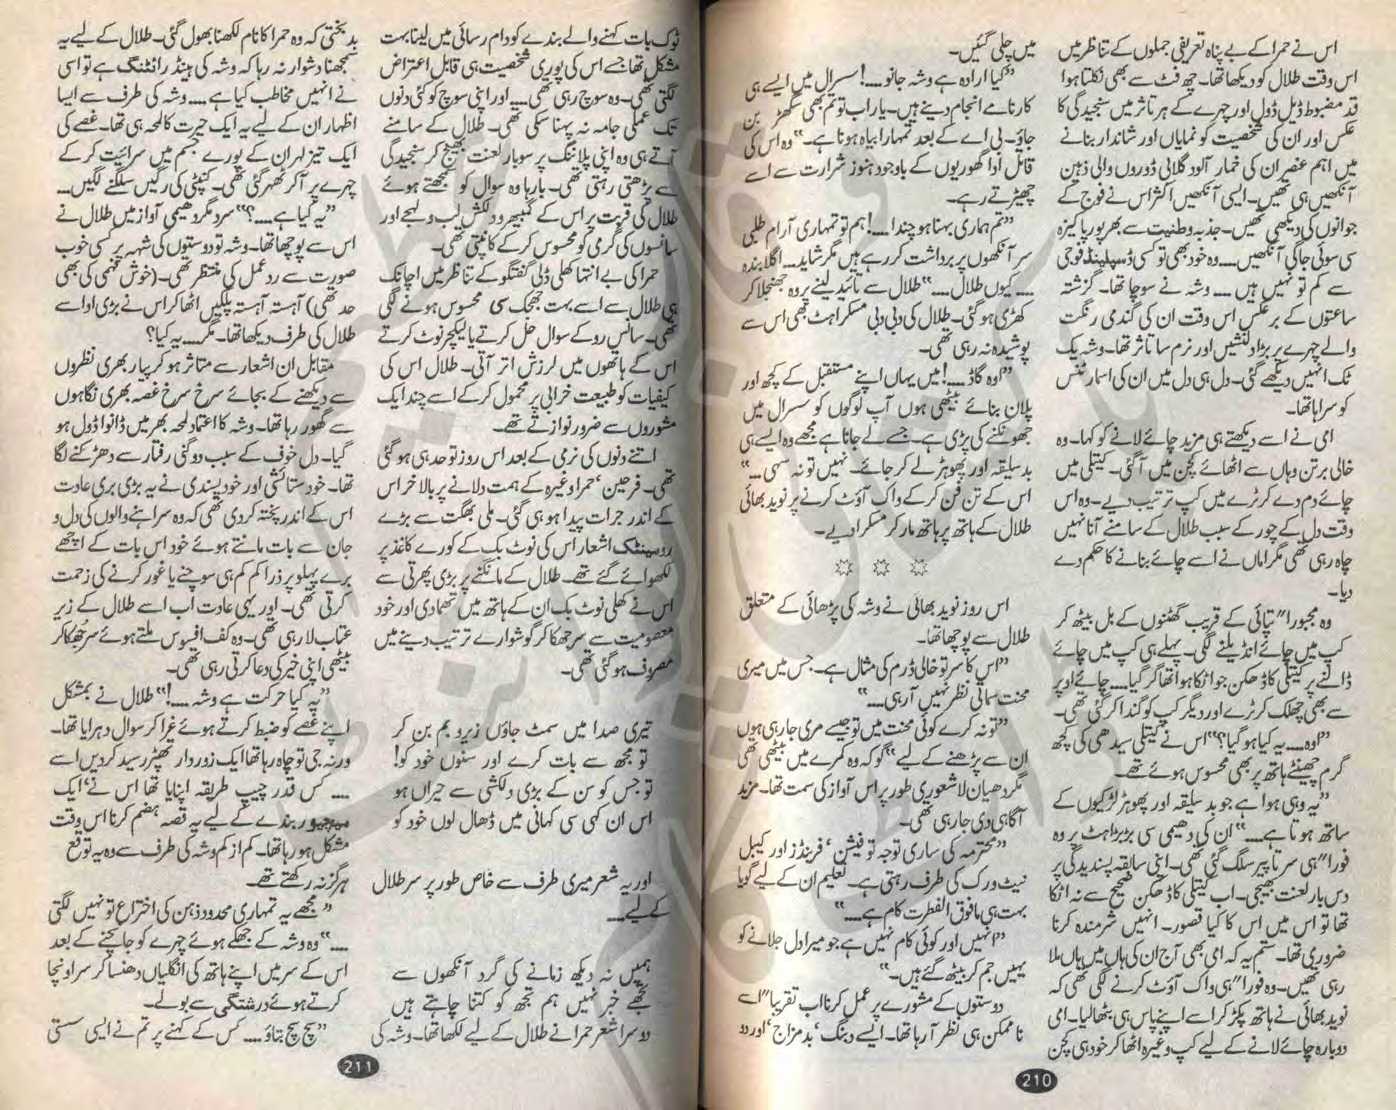 اس نے حمرا کے بے پناہ تعریفی جملوں کے تناظر میں
اس وقت طلال کو دیکھا تھا۔ چھ فٹ سے بھی نکلتا ہوا
قد مضبوط ڈیل ڈول اور چہرے کے ہر تاثر میں سنجیدگی کا
عکس اور ان کی شخصیت کو نمایاں اور شاندار بنانے
میں اہم عنصر ان کی خمار آلود گلابی ڈوروں والی ذہین
آنکھیں ہی تھیں۔ ایسی آنکھیں اکثر اس نے فوج کے
جوانوں کی دیکھی تھیں۔ جذبہ وطنیت سے بھرپور پاکیزہ
سی سوئی جاگی آنکھیں۔۔۔۔ وہ خود بھی تو کسی ڈسپلینڈ فوجی
سے کم تو نہیں ہیں ۔۔۔۔ وشہ نے سوچا تھا۔ گزشتہ
ساعتوں کے برعکس اس وقت ان کی گندمی رنگت
والے چہرے پر بڑا دلنشیں اور نرم سا تاثر تھا۔ وشہ یک
ٹک انہیں دیکھے گئی۔ دل ہی دل میں ان کی اسمارٹنس
کو سراہا تھا۔
امی نے اسے دیکھتے ہی مزید چائے لانے کو کہا۔ وہ
خالی برتن وہاں سے اٹھائے کچن میں آگئی۔ کیتلی میں
چائے دم دے کر ٹرے میں کپ ترتیب دیے۔ وہ اس
وقت دل کے چور کے سبب طلال کے سامنے آنا نہیں
چاہ رہی تھی مگر اماں نے اسے چائے بنانے کا حکم دے
دیا۔
وہ مجبورا" تپائی کے قریب گھٹنوں کے بل بیٹھ کر
کپ میں چائے انڈیلنے لگی۔ پہلے ہی کپ میں چائے
ڈالنے پر کیتلی کا ڈھکن جو اٹکا ہوا تھا گر گیا۔۔۔۔ چائے اوپر
سے بھی چھلک کر ٹرے اور دیگر کپ کو گندا کر گئی تھی۔
"اوہ۔۔۔۔ یہ کیا ہو گیا؟" اس نے کیتلی سیدھی کی کچھ
گرم چھینٹے ہاتھ پر بھی محسوس ہوئے تھے۔
"یہ وہی ہوا ہے جو بد سلیقہ اور پھوہڑ لڑکیوں کے
ساتھ ہوتا ہے۔۔۔۔" ان کی دھیمی سی بڑبڑاہٹ پر وہ
فورا" ہی سر تا پیر سلگ گئی تھی۔ اپنی سابقہ پسندیدگی پر
دس بار لعنت بھیجی۔ اب کیتلی کا ڈھکن صحیح سے نہ اٹکا
تھا تو اس میں اس کا کیا قصور۔ انہیں شرمندہ کرنا
ضروری تھا۔ ستم یہ کہ امی بھی آج ان کی ہاں میں ہاں ملا
رہی تھیں۔ وہ فورا" ہی واک آؤٹ کرنے لگی تھی کہ
نوید بھائی نے ہاتھ پکڑ کر اسے اپنے پاس ہی بٹھا لیا۔ امی
دوبارہ چائے لانے کے لیے کپ وغیرہ اٹھا کر خود ہی کچن
میں چلی گئیں۔
"کیا ارادہ ہے وشہ جانو۔۔۔۔! سسرال میں ایسے ہی
کارنامے انجام دینے ہیں۔ یار اب تو تم بھی سگھڑ بن
جاؤ۔ بی اے کے بعد تمہارا بیاہ ہونا ہے۔" وہ اس کی
قاتل ادا گھوریوں کے باوجود ہنوز شرارت سے اسے
چھیڑتے رہے۔
"تم ہماری بہنا ہو چندا۔۔۔۔! ہم تو تمہاری آرام طلبی
سر آنکھوں پر برداشت کر رہے ہیں مگر شاید۔۔۔۔ اگلا بندہ
۔۔۔۔ کیوں طلال۔۔۔۔" طلال سے تائید لینے پر وہ جھنجلا کر
کھڑی ہو گئی۔ طلال کی دبی دبی مسکراہٹ بھی اس سے
پوشیدہ نہ رہی تھی۔
"اوہ گاڈ۔۔۔۔! میں یہاں اپنے مستقبل کے کچھ اور
پلان بنائے بیٹھی ہوں آپ لوگوں کو سسرال میں
جھونکنے کی پڑی ہے۔ جسے لے جانا ہے مجھے وہ ایسے ہی
بد سلیقہ اور پھوہڑ لے کر جائے۔ نہیں تو نہ سہی ۔۔"
اس کے تن فن کر کے واک آؤٹ کرنے پر نوید بھائی
طلال کے ہاتھ پر ہاتھ مار کر مسکرا دیے۔
☼ ☼ ☼
اس روز نوید بھائی نے وشہ کی پڑھائی کے متعلق
طلال سے پوچھا تھا۔
"اس کا سر تو خالی ڈرم کی مثال ہے۔ جس میں میری
محنت سمائی نظر نہیں آرہی۔۔۔۔"
"تو نہ کرے کوئی محنت میں تو جیسے مری جارہی ہوں
ان سے پڑھنے کے لیے" گو کہ وہ کمرے میں بیٹھی تھی
مگر دھیان لاشعوری طور پر اس آواز کی سمت تھا۔ مزید
آگاہی دی جارہی تھی۔
"محترمہ کی ساری توجہ تو فیشن، فرینڈز اور کیبل
نیٹ ورک کی طرف رہتی ہے۔ تعلیم ان کے لیے گویا
بہت ہی مافوق الفطرت کام ہے۔۔۔۔"
"انہیں اور کوئی کام نہیں ہے جو میرا دل جلانے کو
یہیں جم کر بیٹھ گئے ہیں۔"
دوستوں کے مشورے پر عمل کرنا اب تقریبا" اسے
ناممکن ہی نظر آرہا تھا۔ ایسے دبنگ، بد مزاج، اور دو
210
ٹوک بات کہنے والے بندے کو دام رسائی میں لینا بہت
مشکل تھا جسے اس کی پوری شخصیت ہی قابل اعتراض
لگتی تھی۔ وہ سوچ رہی تھی۔۔۔۔ اور اپنی سوچ کو کئی دنوں
تک عملی جامہ نہ پہنا سکی تھی۔ طلال کے سامنے
آتے ہی وہ اپنی پلاننگ پر سو بار لعنت بھیج کر سنجیدگی
سے پڑھتی رہتی تھی۔ بارہا وہ سوال کو سمجھتے ہوئے
طلال کی قربت پر اس کے گمبھیر و دلکش لب و لہجے اور
سانسوں کی گرمی کو محسوس کر کے کانپتی تھی۔
حمرا کی بے انتہا کھلی ڈلی گفتگو کے تناظر میں اچانک
ہی طلال سے اسے بہت جھجک سی محسوس ہونے لگی
تھی۔ سانس روکے سوال حل کرتے یا لیکچر نوٹ کرتے
اس کے ہاتھوں میں لرزش اتر آتی۔ طلال اس کی
کیفیات کو طبیعت خرابی پر محمول کر کے اسے چند ایک
مشوروں سے ضرور نوازتے تھے۔
اتنے دنوں کی نرمی کے بعد اس روز تو حد ہی ہو گئی
تھی۔ فرحین، حمرا وغیرہ کے ہمت دلانے پر بالاخر اس
کے اندر جرات پیدا ہو ہی گئی۔ ملی بھگت سے بڑے
رومینٹک اشعار اس کی نوٹ بک کے کورے کاغذ پر
لکھوائے گئے تھے۔ طلال کے مانگنے پر بڑی پھرتی سے
اس نے کھلی نوٹ بک ان کے ہاتھ میں تھما دی اور خود
معصومیت سے سر جھکا کر گوشوارے ترتیب دینے میں
مصروف ہو گئی تھی۔
تیری صدا میں سمٹ جاؤں زیرو بم بن کر
تو مجھ سے بات کرے اور سنوں خود کو!
تو جس کو سن کے بڑی دلکشی سے حیراں ہو
اس ان کہی سی کہانی میں ڈھال لوں خود کو
اور یہ شعر میری طرف سے خاص طور پر سر طلال
کے لیے۔۔۔۔
ہمیں نہ دیکھ زمانے کی گرد آنکھوں سے
تجھے خبر نہیں ہم تجھ کو کتنا چاہتے ہیں
دوسرا شعر حمرا نے طلال کے لیے لکھا تھا۔ وشہ کی
بد بختی کہ وہ حمرا کا نام لکھنا بھول گئی۔ طلال کے لیے یہ
سمجھنا دشوار نہ رہا کہ وشہ کی ہینڈ رائٹنگ ہے تو اسی
نے انہیں مخاطب کیا ہے ۔۔۔۔ وشہ کی طرف سے ایسا
اظہار ان کے لیے یہ ایک حیرت کا لمحہ ہی تھا۔ غصے کی
ایک تیز لہر ان کے پورے جسم میں سرائیت کر کے
چہرے پر آ کر ٹھہر گئی تھی۔ کنپٹی کی رگیں سلگنے لگیں۔۔
"یہ کیا ہے۔۔۔۔؟" سرد مگر دھیمی آواز میں طلال نے
اس سے پوچھا تھا۔ وشہ تو دوستیوں کی شہہ پر کسی خوب
صورت سے رد عمل کی منتظر تھی۔ (خوش فہمی کی بھی
حد تھی) آہستہ آہستہ پلکیں اٹھا کر اس نے بڑی ادا سے
طلال کی طرف دیکھا تھا۔ مگر۔۔۔۔ یہ کیا؟
مقابل ان اشعار سے متاثر ہو کر پیار بھری نظروں
سے دیکھنے کے بجائے سرخ سرخ غصہ بھری نگاہوں
سے گھور رہا تھا۔ وشہ کا اعتماد لمحہ بھر میں ڈانوا ڈول ہو
گیا۔ دل خوف کے سبب دوگنی رفتار سے دھڑکنے لگا
تھا۔ خود ستائشی اور خود پسندی نے یہ بڑی بری عادت
اس کے اندر پختہ کر دی تھی کہ وہ سراہنے والوں کی دل و
جان سے بات مانتے ہوئے خود اس بات کے اچھے
برے پہلو پر ذرا کم کم ہی سوچنے یا غور کرنے کی زحمت
کرتی تھی۔ اور یہی عادت اب اسے طلال کے زیر
عتاب لا رہی تھی۔ وہ کف افسوس ملتے ہوئے سر جھکا کر
بیٹھی اپنی خیر کی دعا کرتی رہی تھی۔
"یہ کیا حرکت ہے وشہ ۔۔۔۔!" طلال نے بمشکل
اپنے غصے کو ضبط کرتے ہوئے غرا کر سوال دہرایا تھا۔
ورنہ جی تو چاہ رہا تھا ایک زوردار تھپڑ رسید کر دیں اسے
۔۔۔۔ کس قدر چیپ طریقہ اپنایا تھا اس نے، ایک
میچیور بندے کے لیے یہ قصہ ہضم کرنا اس وقت
مشکل ہو رہا تھا۔ کم از کم وشہ کی طرف سے وہ یہ توقع
ہرگز نہ رکھتے تھے۔
"مجھے یہ تمہاری محدود ذہن کی اختراع تو نہیں لگتی
۔۔۔۔" وہ وشہ کے جھکے ہوئے چہرے کو جانچنے کے بعد
اس کے سر میں اپنے ہاتھ کی انگلیاں دھنسا کر سر اونچا
کرتے ہوئے درشتگی سے بولے۔
"سچ سچ بتاؤ ۔۔۔۔ کس کے کہنے پر تم نے ایسی سستی
211